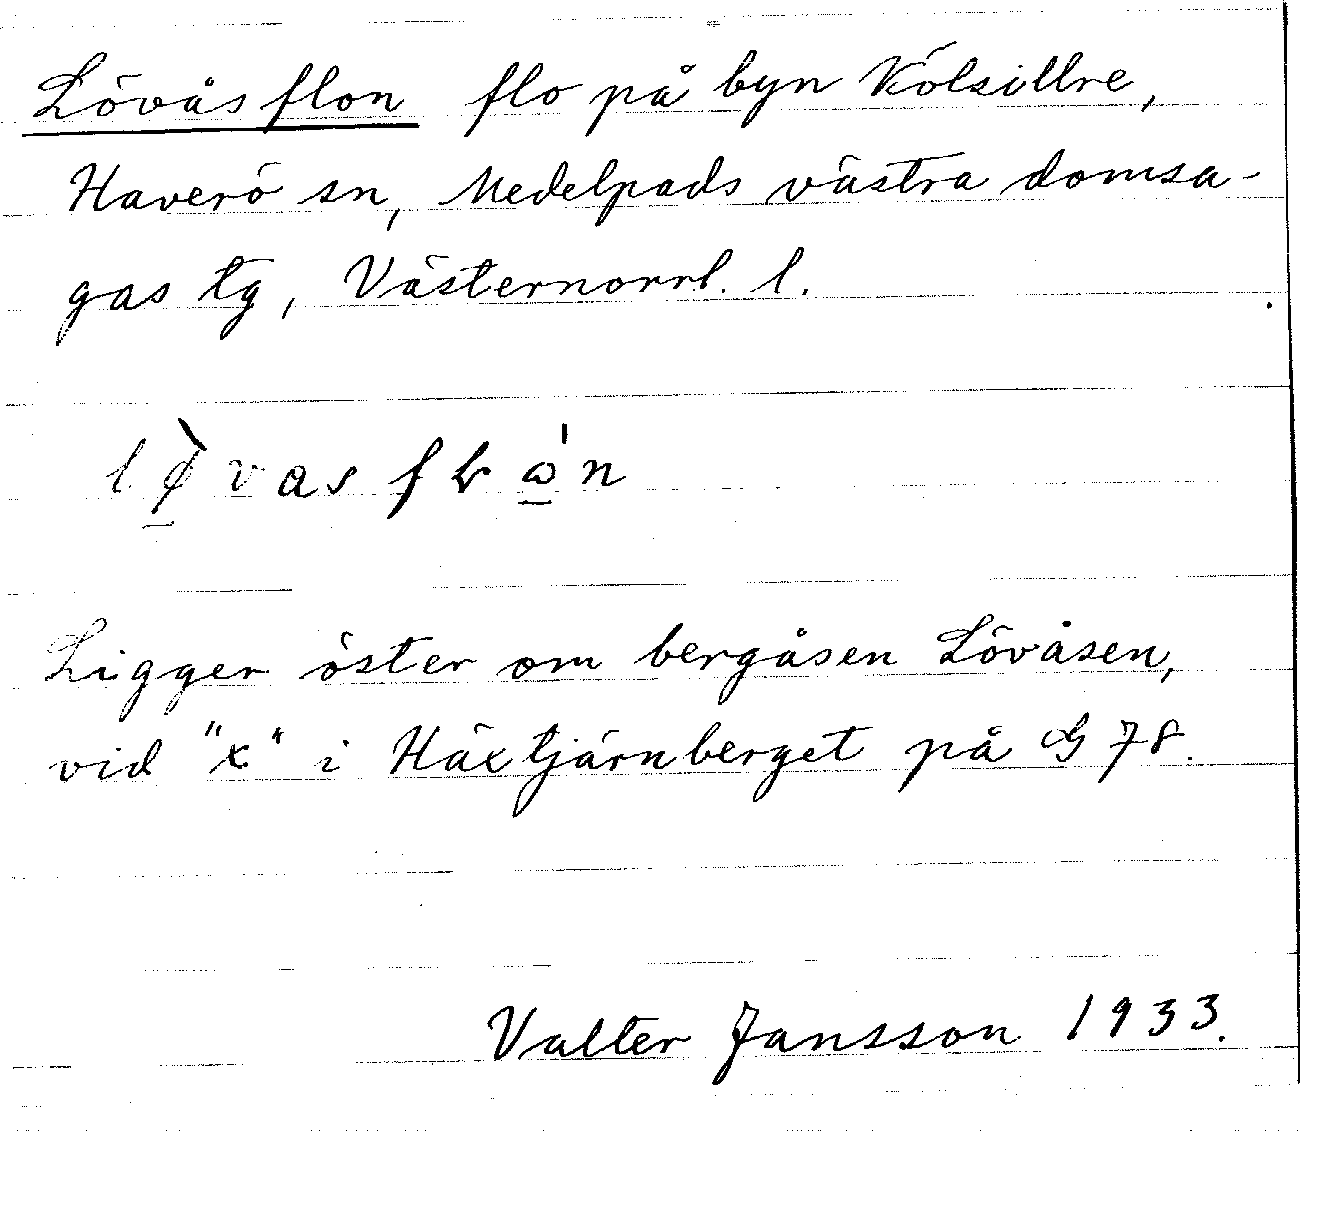 Lövåsflon flo på byn Kölsillre,
Haverö sn, Medelpads västra domsa-
gas tg, Västernorrl. l.
Ligger öster om bergåsen Lövåsen,
vid "x" i Häxtjärnberget på G 78.
Valter Jansson 1933.